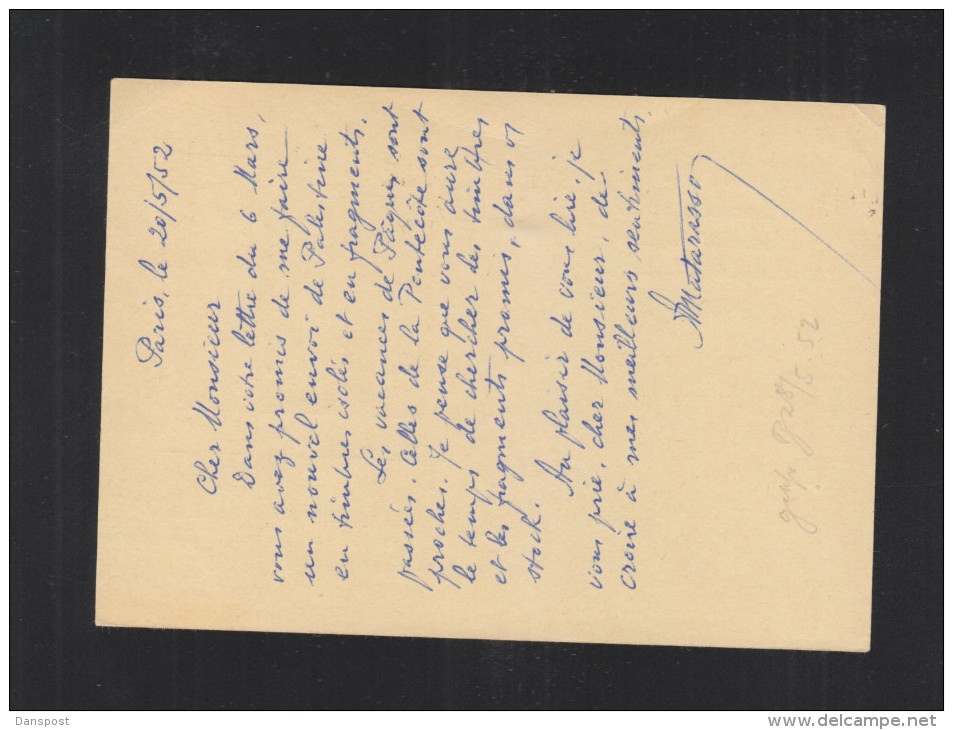 Paris, le 20/5/52
Cher Monsieur
Dans votre lettre du 6 Mars,
vous avez promis de me faire
un nouvel envoi de Palestine
en timbres isolés et en fragments.
Les vacances de Pâques sont
passées. Celles de la Pentecôte sont
proches. Je pense que vous aurez
le temps de chercher des timbres
et les fragments promis, dans vos
stock.
Au plaisir de vous lire, je
vous prie, cher Monsieur, de
croire à mes meilleurs sentiments.
Matarasso
28/5.52
Danspost
www.delcampe.net